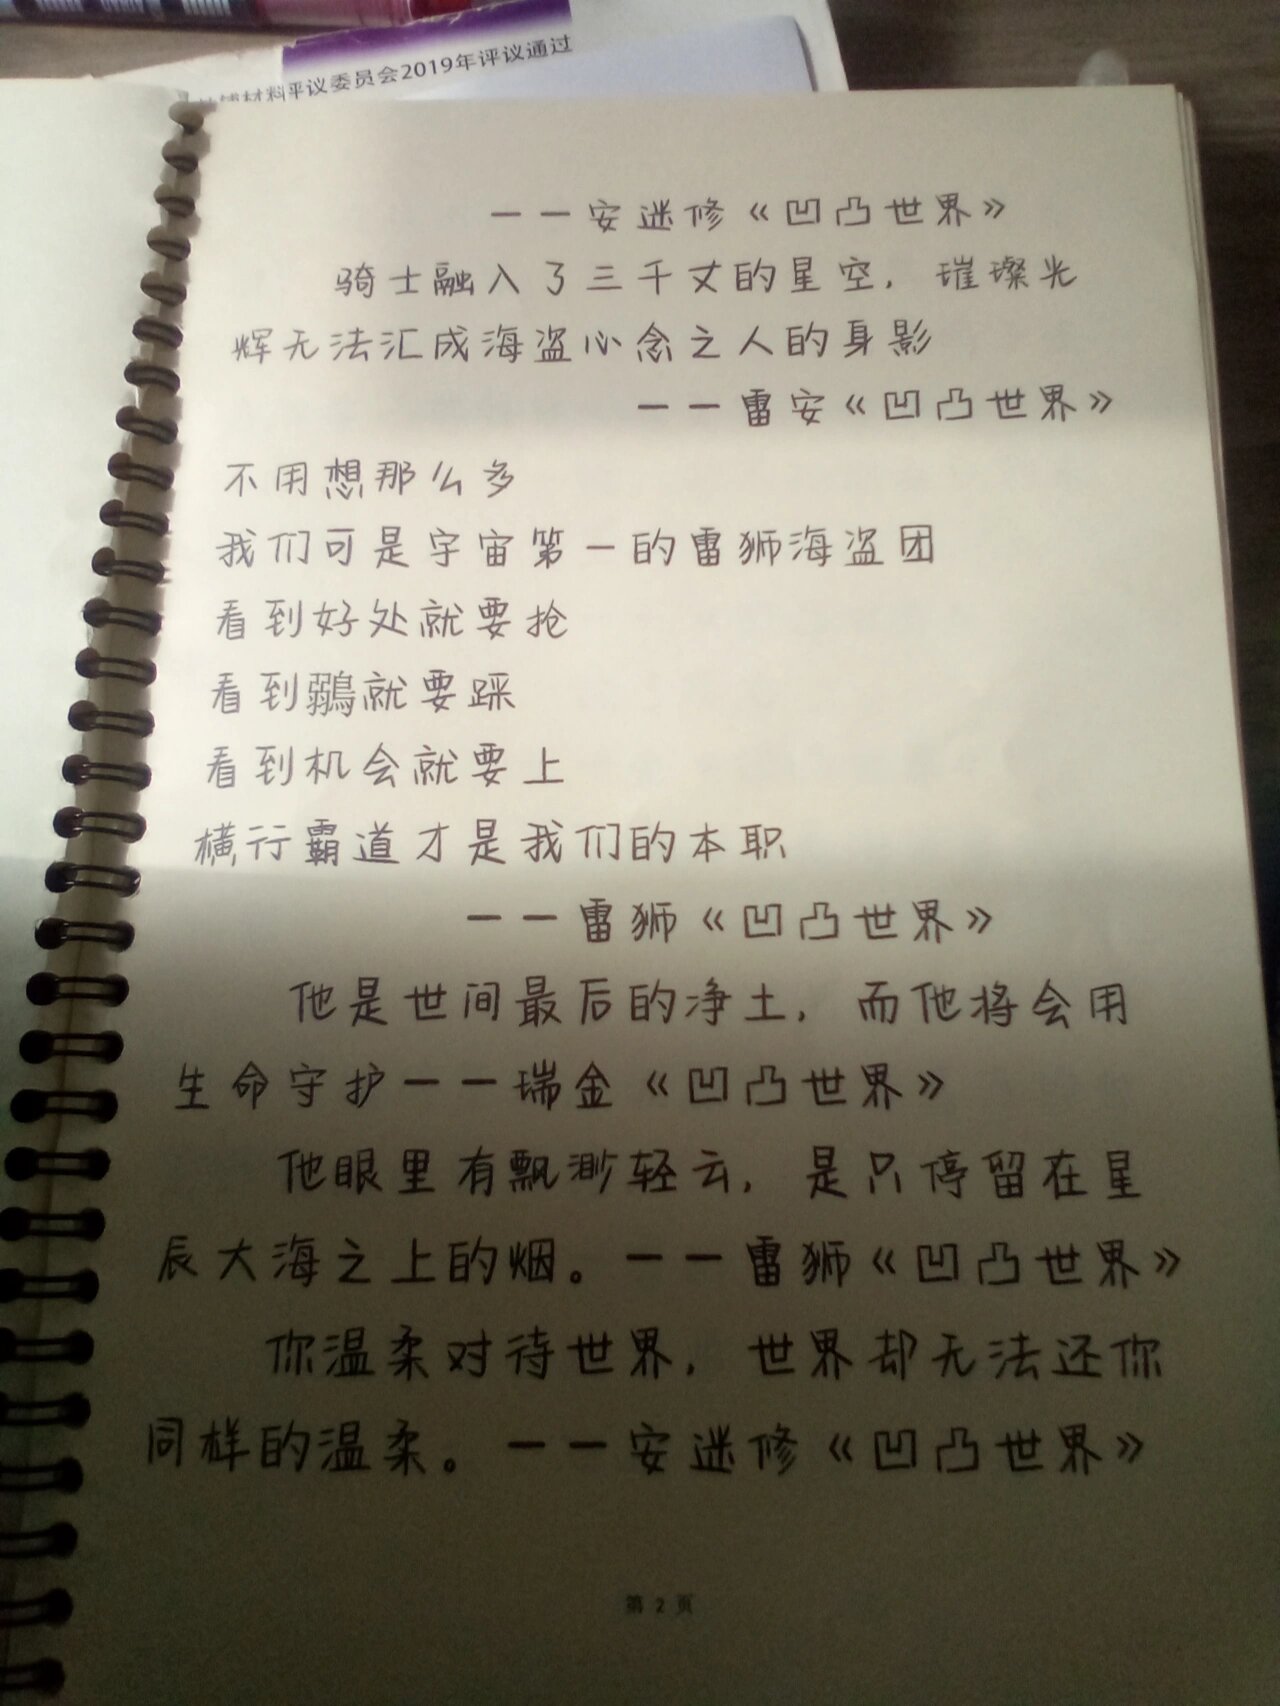 评议委员会2019年评议通过
——安迷修《凹凸世界》
骑士融入了三千丈的星空，璀璨光
辉无法汇成海盗心念之人的身影
——雷安《凹凸世界》
不用想那么多
我们可是宇宙第一的雷狮海盗团
看到好处就要抢
看到鶸就要踩
看到机会就要上
横行霸道才是我们的本职
——雷狮《凹凸世界》
他是世间最后的净土，而他将会用
生命守护——瑞金《凹凸世界》
他眼里有飘渺轻云，是只停留在星
辰大海之上的烟。——雷狮《凹凸世界》
你温柔对待世界，世界却无法还你
同样的温柔。——安迷修《凹凸世界》
第 2 页